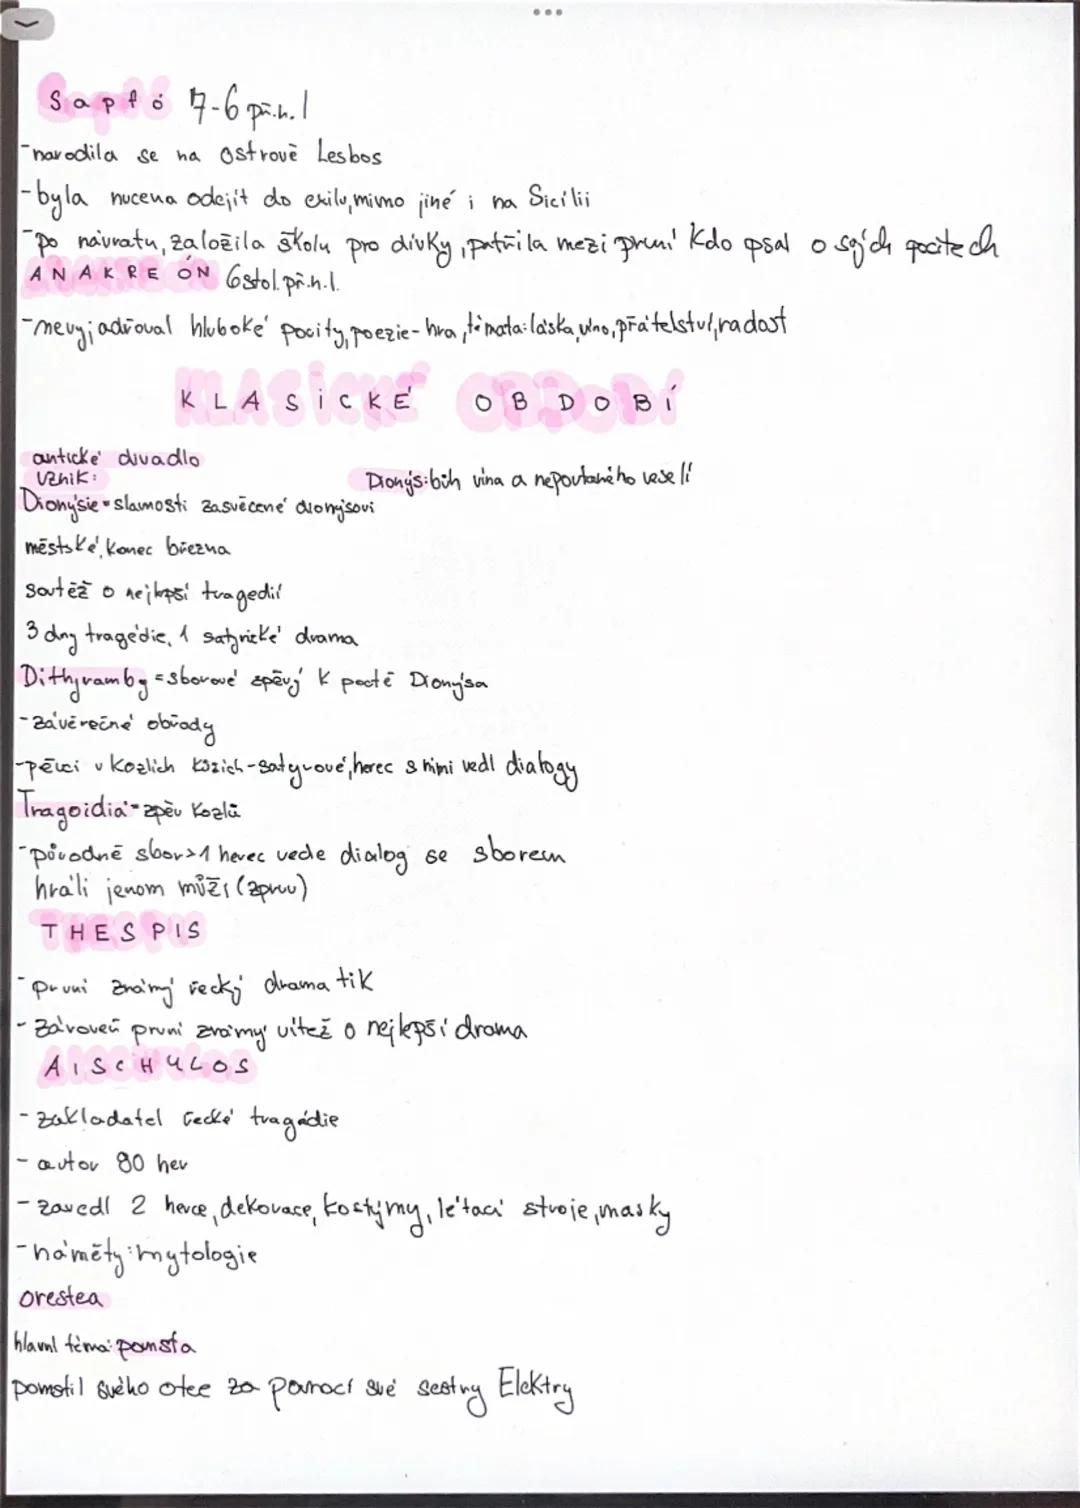 Sapfó 7-6 př.n.l
-narodila se na ostrově Lesbos
-byla nucena odejít do exilu, mimo jiné i na Sicílii
-po návratu, založila školu pro dívky, patřila mezi první kdo psal o svých pocitech
ANAKREÓN 6 stol. př.n.l.
-nevyjadřoval hluboké pocity, poezie-hra, témata: láska, víno, přátelství, radost
KLASICKÉ OBDOBÍ
antické divadlo
Vznik:
Dionýs: bůh vína a nepoutaného veselí
Dionýsie = slavnosti zasvěcené dionýsovi
městské, konec března
soutěž o nejlepší tragedii
3 dny tragédie, 1 satyrické drama
Dithyramby = sborové zpěvy k poctě Dionýsa
-závěrečné obřady
-pěvci v kozlích kůzích-satyrové, herec s nimi vedl dialogy
Tragoidiá-zpěv kozlů
-původně sbor>1 herec vede dialog se sborem
hráli jenom můži (zprvu)
THESPIS
-první známý řecký dramatik
-zároveň první známý vítěž o nejlepší drama
AISCHYLOS
-zakladatel řecké tragédie
-autor 90 her
-zavedl 2 herce, dekorace, kostýmy, létací stroje, masky
-náměty: mytologie
orestea
hlavní téma: pomsta
pomstil svého otce za pomocí své sestry Elektry